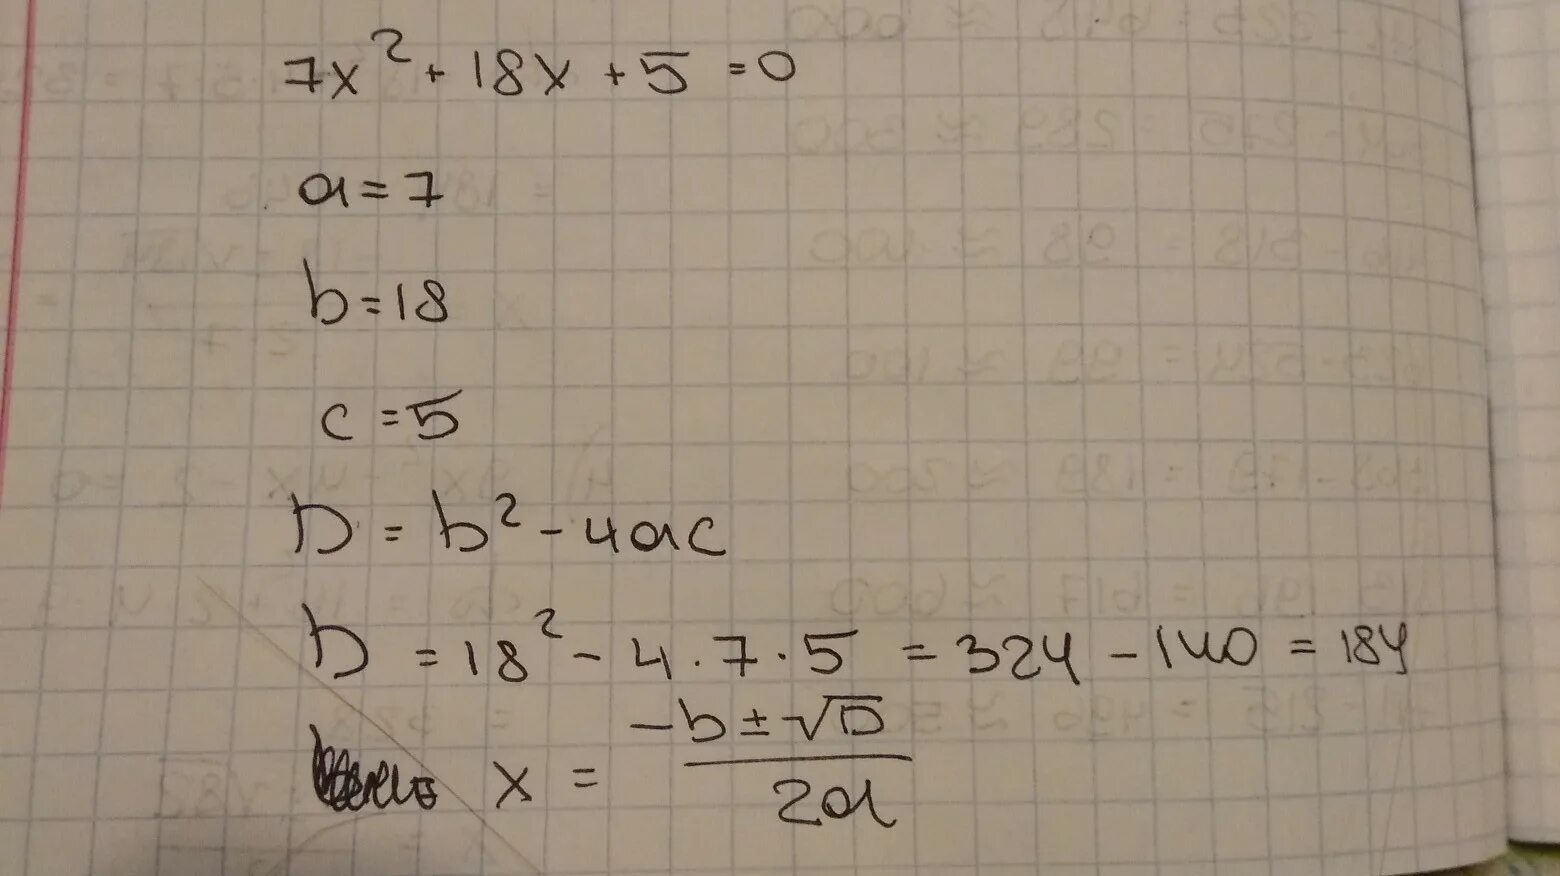 7x² + 18x + 5 = 0
a = 7
b = 18
c = 5
D = b² - 4ac
D = 18² - 4 · 7 · 5 = 324 - 140 = 184
x = (-b ± √D) / 2a